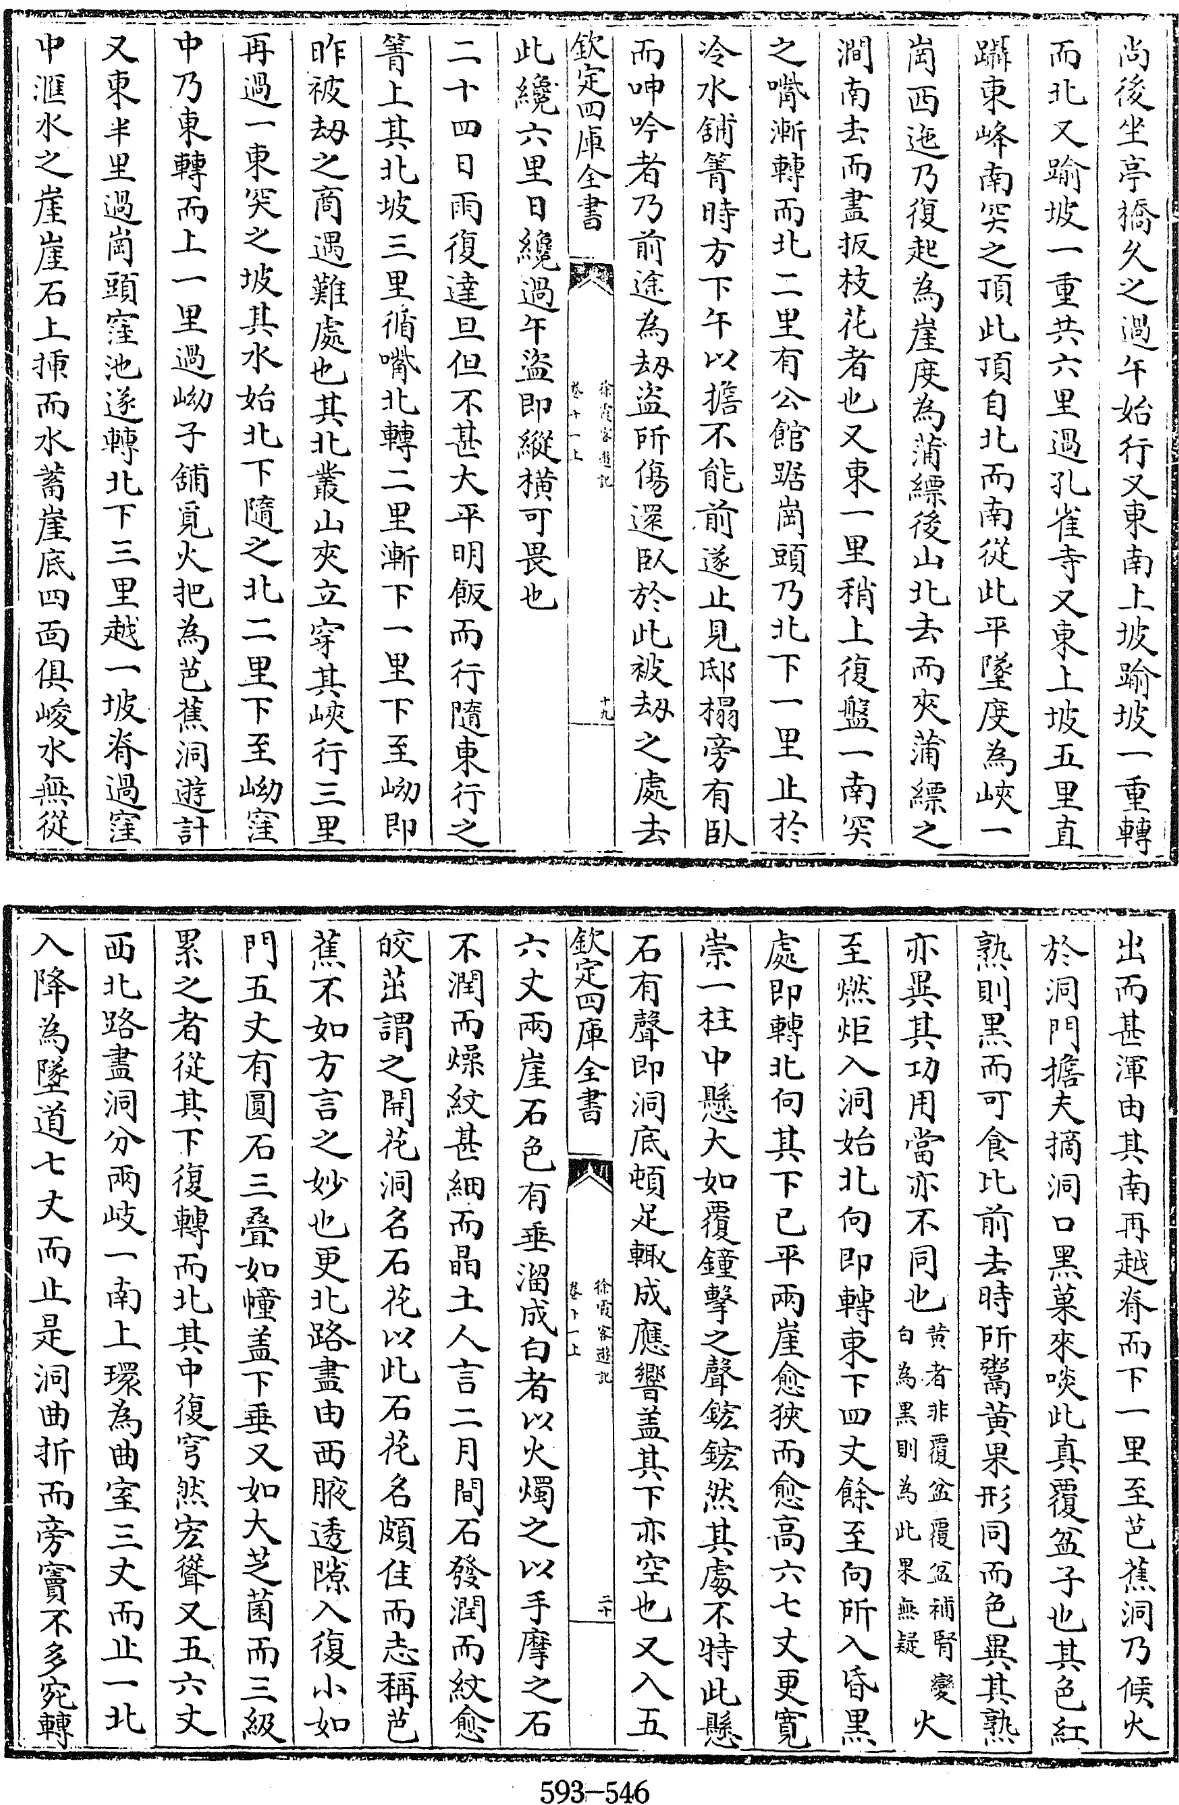 尚後坐亭橋久之過午始行又東南上坡踰坡一重轉
而北又踰坡一重共六里過孔雀寺又東上坡五里直
躡東峰南突之頂此頂自北而南從此平墜度為峽一
崗西迤乃復起為崖度為蒲縹後山北去而夾蒲縹之
澗南去而盡扳枝花者也又東一里稍上復盤一南突
之嘴漸轉而北二里有公館踞崗頭乃北下一里止於
冷水舖箐時方下午以擔不能前遂止見邸榻旁有臥
而呻吟者乃前途為劫盜所傷還臥於此被劫之處去
欽定四庫全書
徐霞客遊記
卷十一上
十九
此纔六里日纔過午盜即縱橫可畏也
二十四日雨復達旦但不甚大平明飯而行隨東行之
箐上其北坡三里循嘴北轉二里漸下一里下至坳即
昨被劫之商遇難處也其北叢山夾立穿其峽行三里
再過一東突之坡其水始北下隨之北二里下至坳窪
中乃東轉而上一里過坳子舖覓火把為芭蕉洞遊計
又東半里過崗頭窪池遂轉北下三里越一坡脊過窪
中滙水之崖崖石上揷而水蓄崖底四面俱峻水無從
出而甚渾由其南再越脊而下一里至芭蕉洞乃候火
於洞門擔夫摘洞口黑菓來啖此真覆盆子也其色紅
熟則黑而可食比前去時所鬻黃果形同而色異其熟
亦異其功用當亦不同也黃者非覆盆覆盆補腎變
白為黑則為此果無疑火
至燃炬入洞始北向即轉東下四丈餘至向所入昏黑
處即轉北向其下已平兩崖愈狹而愈高六七丈更寬
崇一柱中懸大如覆鐘擊之聲鋐鋐然其處不特此懸
石有聲即洞底頓足輒成應響蓋其下亦空也又入五
欽定四庫全書
徐霞客遊記
卷十一上
二十
六丈兩崖石色有垂溜成白者以火燭之以手摩之石
不潤而燥紋甚細而晶土人言二月間石發潤而紋愈
皎茁謂之開花洞名石花以此石花名頗佳而志稱芭
蕉不如方言之妙也更北路盡由西腋透隙入復小如
門五丈有圓石三疊如幢蓋下垂又如大芝菌而三級
累之者從其下復轉而北其中復穹然宏聳又五六丈
西北路盡洞分兩岐一南上環為曲室三丈而止一北
入降為墜道七丈而止是洞曲折而旁竇不多宛轉
593-546